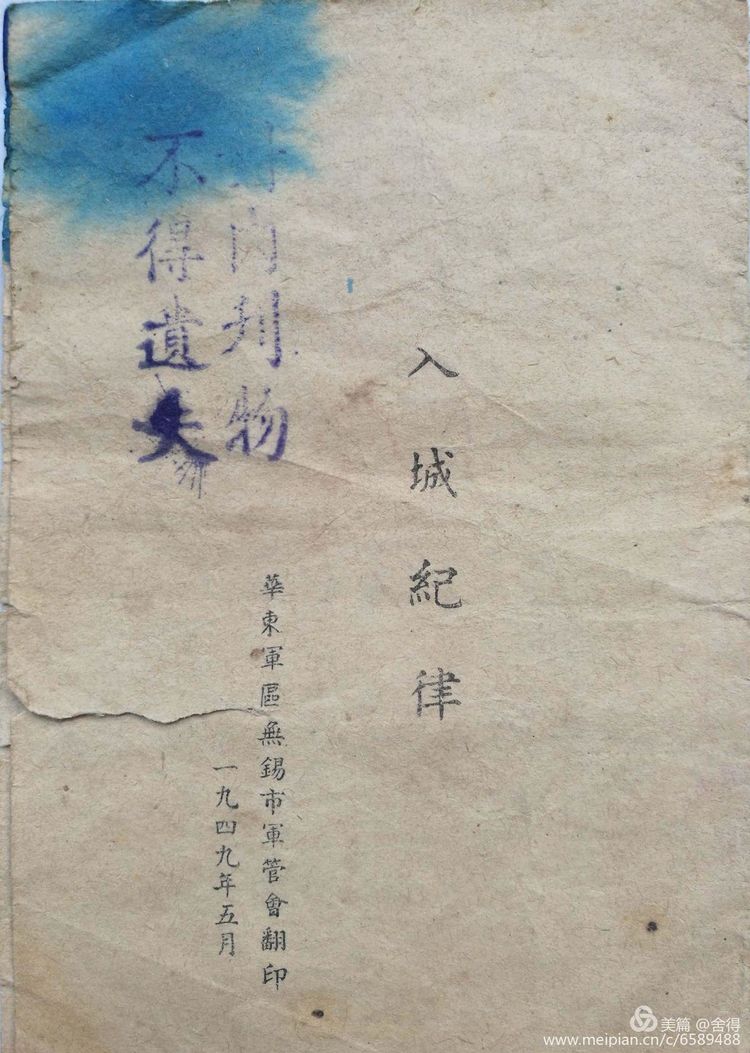 入城紀律
内刊物
不得遺失
華東軍區無錫市軍管會翻印
一九四九年五月
美篇 @舍得
www.meipian.cn/c/6589488